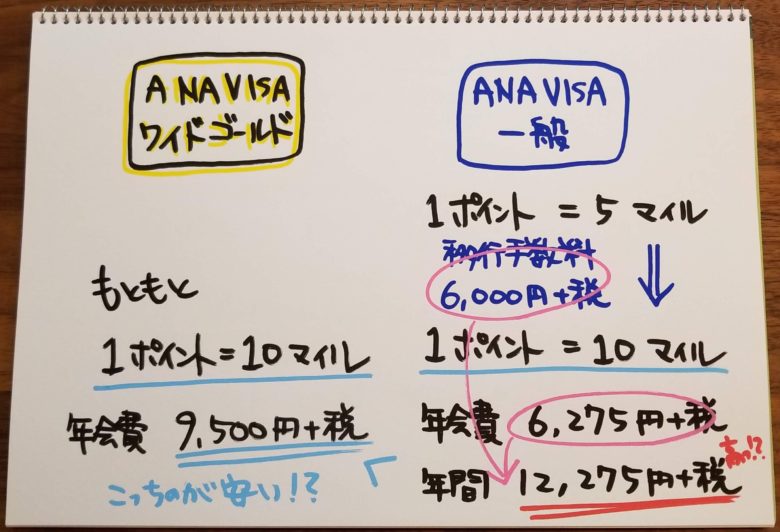 ANA VISA
ワイドゴールド
もともと
1ポイント=10マイル
年会費 9,500円+税
こっちのが安い!?
ANA VISA
一般
1ポイント = 5マイル
移行手数料
6,000円+税
1ポイント = 10マイル
年会費 6,275円+税
高っ!?
年間 12,275円+税